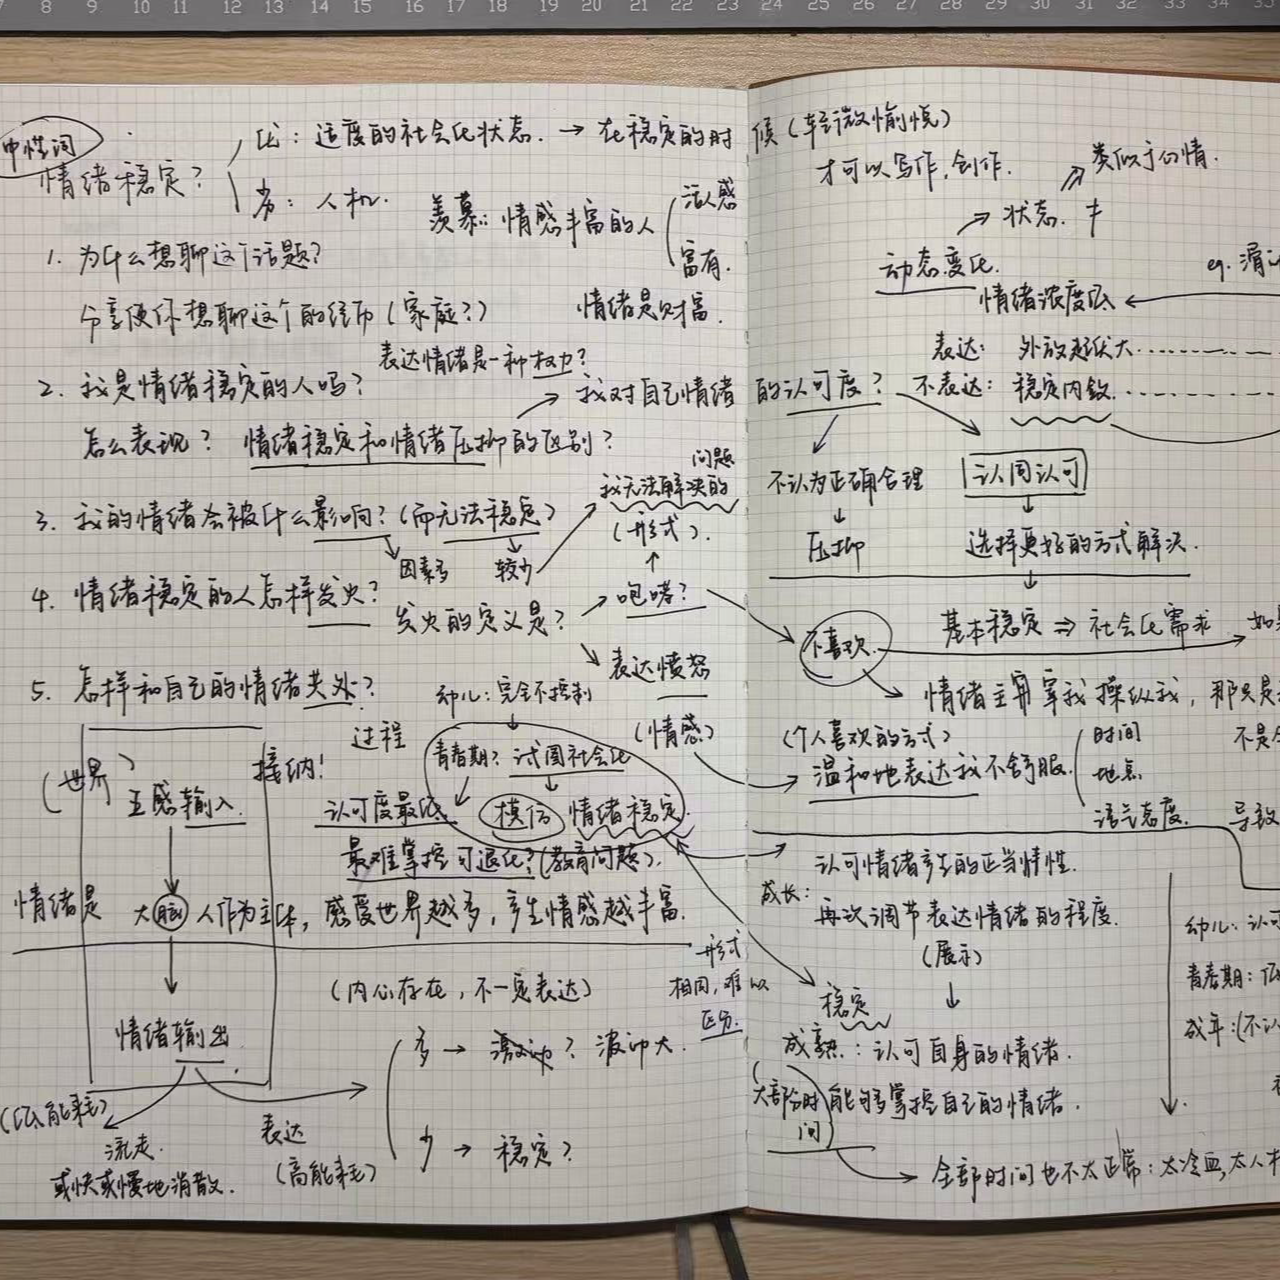 7 8 9 10 11 12 13 14 15 16 17 18 19 20 21 22 23 24 25 26 27 28 29 30 31 32 33 34 35
中性词
情绪稳定?
比: 适度的社会化状态. → 在稳定的时候(轻微愉悦)
才可以写作,创作.
人机.
羡慕: 情感丰富的人
活人感
富有.
1. 为什么想聊这个话题?
分享使你想聊这个的经历(家庭?)
情绪是财富.
表达情绪是一种权力?
2. 我是情绪稳定的人吗?
怎么表现? 情绪稳定和情绪压抑的区别?
→ 我对自己情绪的认可度?
3. 我的情绪会被什么影响?(而无法稳定)
因素多
较少
问题
我无法解决的
(形式).
4. 情绪稳定的人怎样发火?
发火的定义是?
→ 咆哮?
表达愤怒
(情感)
5. 怎样和自己的情绪共处?
过程
(世界)
接纳!
五感输入.
情绪是 大脑 人作为主体, 感受世界越多, 产生情感越丰富.
情绪输出
(低能耗)
流走.
或快或慢地消散.
表达
(高能耗)
幼儿: 完全不控制
青春期? 试图社会化
认可度最低
模仿 情绪稳定.
最难掌控 可退化?(教育问题).
(内心存在, 不一定表达)
形式
相同, 难以
区分.
多 → 激动? 波动大.
少 → 稳定?
动态变化.
→ 状态.
类似于心情.
eg.
情绪浓度低 ←
表达: 外放起伏大
不表达: 稳定内敛
不认为正确合理
↓
压抑
认同认可
↓
选择更好的方式解决.
↓
基本稳定 ⇒ 社会化需求
不喜欢.
情绪主宰我操纵我, 那只是
(个人喜欢的方式)
温和地表达我不舒服.
时间
地点
语气态度.
不是
导致
认可情绪产生的正当情性.
成长:
再次调节表达情绪的程度.
(展示)
↓
稳定
成熟: 认可自身的情绪.
(大部分时间) 能够掌控自己的情绪.
→ 全部时间也不太正常: 太冷血, 太人机
幼儿: 认可
青春期: 低
成年: